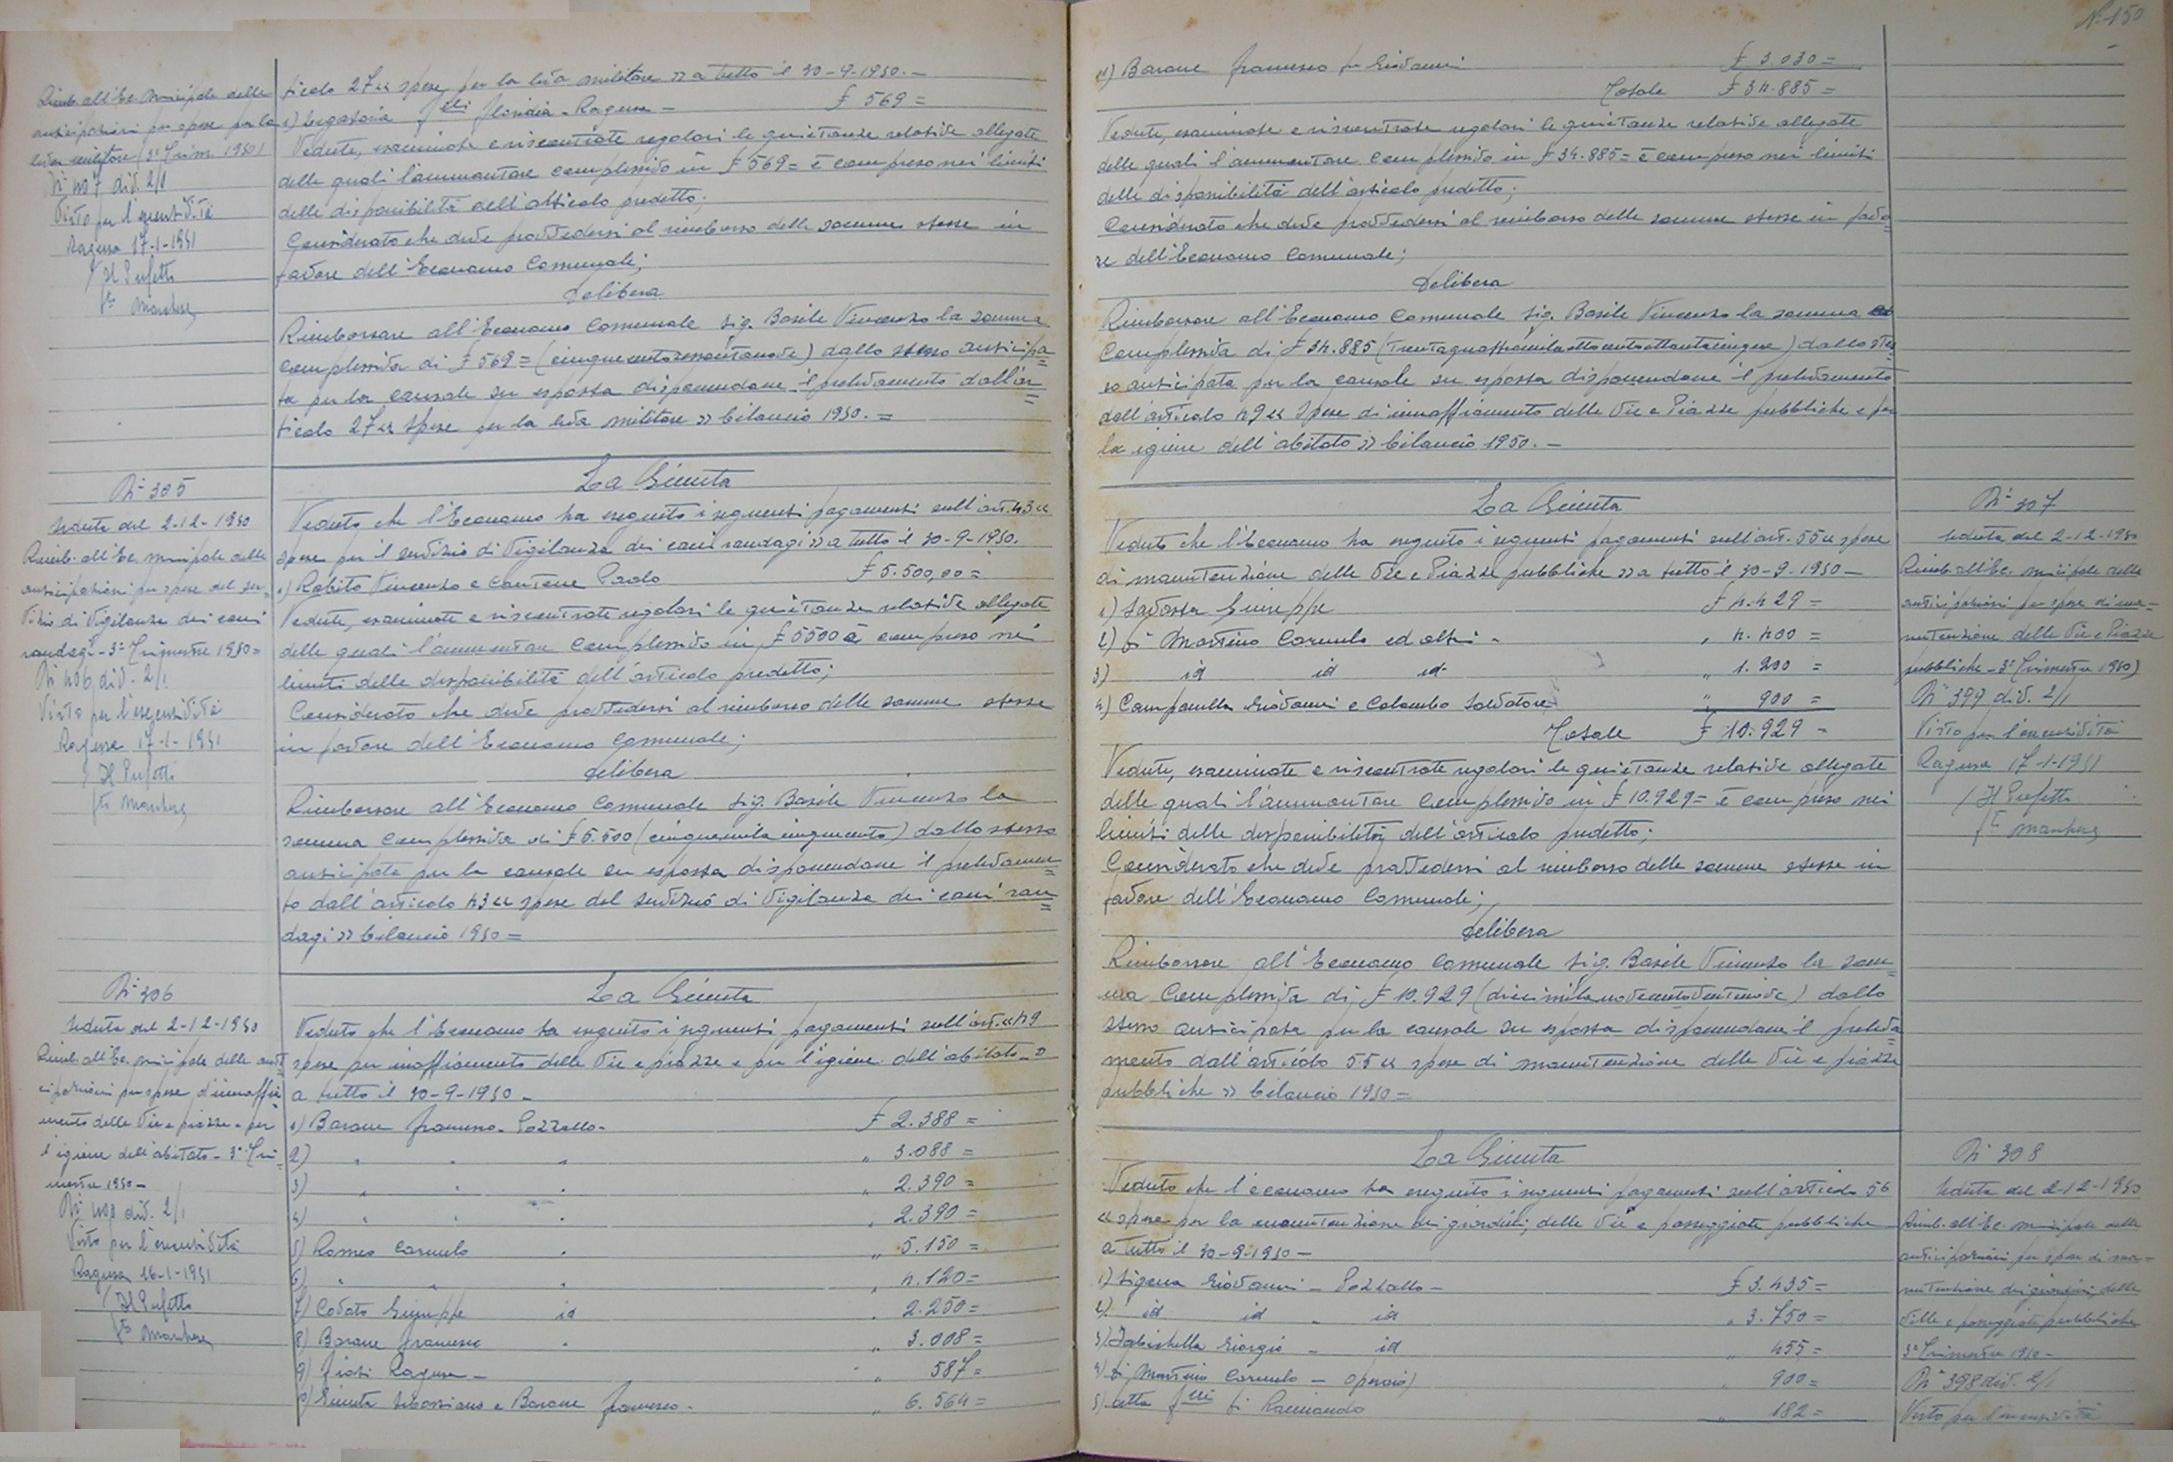 Rimb. all'Ec. Municipale delle
anticipazioni per spese per la
leva militare (3° Trim. 1950)
N° 407 div. 2/1
Visto per l'esecutività
Ragusa 17-1-1951
p/ Il Prefetto
fto
ticolo 27 « spese per la leva militare » a tutto il 30-9-1950.—
1) Legatoria f.lli Floridia - Ragusa — £ 569 =
Vedute, esaminate e riscontrate regolari le quietanze relative allegate
delle quali l'ammontare complessivo in £ 569= è compreso nei limiti
delle disponibilità dell'articolo predetto;
Considerato che deve provvedersi al rimborso delle somme stesse in
favore dell'Economo Comunale;
Delibera
Rimborsare all'Economo Comunale Sig. Basile Vincenzo la somma
complessiva di £ 569 = (cinquecentosessantanove) dallo stesso anticipa=
ta per la causale su esposta disponendone il prelevamento dall'ar=
ticolo 27 « Spese per la leva militare » bilancio 1950. =
N° 305
Seduta del 2-12-1950
Rimb. all'Ec. Municipale delle
anticipazioni per spese del ser=
vizio di Vigilanza dei cani
randagi - 3° Trimestre 1950=
N° 406 div. 2/1
Visto per l'esecutività
Ragusa 17-1-1951
p/ Il Prefetto
fto
La Giunta
Veduto che l'Economo ha eseguito i seguenti pagamenti sull'art. 43 «
spese per il servizio di Vigilanza dei cani randagi » a tutto il 30-9-1950.
1) Rabito Vincenzo e Paolo £ 5.500,00 =
Vedute, esaminate e riscontrate regolari le quietanze relative allegate
delle quali l'ammontare complessivo in £ 5500 è compreso nei
limiti delle disponibilità dell'articolo predetto;
Considerato che deve provvedersi al rimborso delle somme stesse
in favore dell'Economo Comunale;
Delibera
Rimborsare all'Economo Comunale Sig. Basile Vincenzo la
somma complessiva di £ 5.500 (cinquemilacinquecento) dallo stesso
anticipata per la causale su esposta disponendone il prelevamen=
to dall'articolo 43 « spese del servizio di Vigilanza dei cani ran=
dagi » bilancio 1950 =
N° 306
Seduta del 2-12-1950
Rimb. all'Ec. Municipale delle anti
cipazioni per spese d'innaffia=
mento delle Vie e piazze e per
l'igiene dell'abitato - 3° Tri=
mestre 1950 —
N° div. 2/1
Visto per l'esecutività
Ragusa 16-1-1951
p/ Il Prefetto
fto
La Giunta
Veduto che l'Economo ha eseguito i seguenti pagamenti sull'art. « 49
spese per innaffiamento delle Vie e piazze e per l'igiene dell'abitato »
a tutto il 30-9-1950 —
1) Barone Francesco - Pozzallo - £ 2.388 =
2) " " " " 3.088 =
3) " " " " 2.390 =
4) " " " " 2.390 =
5) Romeo Carmelo " " 5.150 =
6) " " " " 4.120 =
7) Covato Giuseppe id " 2.250 =
8) Barone Francesco " " 3.008 =
9) Ragusa — " 587 =
10) Giunta Sebastiano e Barone Francesco - " 6.564 =
N° 150
11) Barone Francesco fu Giovanni £ 3.030 =
Totale £ 34.885 =
Vedute, esaminate e riscontrate regolari le quietanze relative allegate
delle quali l'ammontare complessivo in £ 34.885= è compreso nei limiti
delle disponibilità dell'articolo predetto;
Considerato che deve provvedersi al rimborso delle somme stesse in favo=
re dell'Economo Comunale;
Delibera
Rimborsare all'Economo Comunale Sig. Basile Vincenzo la somma
complessiva di £ 34.885 (trentaquattromilaottocentottantacinque) dallo stes=
so anticipata per la causale su esposta disponendone il prelevamento
dall'articolo 49 « Spese di innaffiamento delle Vie e Piazze pubbliche e per
la igiene dell'abitato » bilancio 1950. —
La Giunta
Veduto che l'Economo ha eseguito i seguenti pagamenti sull'art. 55 « spese
di manutenzione delle Vie e Piazze pubbliche » a tutto il 30-9-1950 —
1) Savassa Giuseppe £ 4.429 =
2) Di Martino Carmelo ed altri - " 4.400 =
3) id id id " 1.200 =
4) Campanella Giovanni e Colombo Salvatore " 900 =
Totale £ 10.929 =
Vedute, esaminate e riscontrate regolari le quietanze relative allegate
delle quali l'ammontare complessivo in £ 10.929= è compreso nei
limiti delle disponibilità dell'articolo predetto;
Considerato che deve provvedersi al rimborso delle somme stesse in
favore dell'Economo Comunale;
Delibera
Rimborsare all'Economo Comunale Sig. Basile Vincenzo la som=
ma complessiva di £ 10.929 (diecimilanovecentoventinove) dallo
stesso anticipata per la causale su esposta disponendone il preleva=
mento dall'articolo 55 « spese di manutenzione delle Vie e piazze
pubbliche » bilancio 1950 =
N° 307
Seduta del 2-12-1950
Rimb. all'Ec. Municipale delle
anticipazioni per spese di ma=
nutenzione delle Vie e Piazze
pubbliche - 3° Trimestre 1950)
N° 399 div. 2/1
Visto per l'esecutività
Ragusa 17-1-1951
p/ Il Prefetto
fto
La Giunta
Veduto che l'economo ha eseguito i seguenti pagamenti sull'articolo 56
« spese per la manutenzione dei giardini, delle Vie e passeggiate pubbliche
a tutto il 30-9-1950 —
1) Sigona Giovanni - Pozzallo - £ 3.435 =
2) id id " id " 3.750 =
3) Iabichella Giorgio - id " 455 =
4) Di Martino Carmelo - operaio) " 900 =
5) Ditta f.lli Di Raimondo " 182 =
N° 308
Seduta del 2-12-1950
Rimb. all'Ec. Municipale delle
anticipazioni per spese di ma=
nutenzione dei giardini, delle
Ville e passeggiate pubbliche
3° Trimestre 1950 -
N° 398 div. 2/1
Visto per l'esecutività